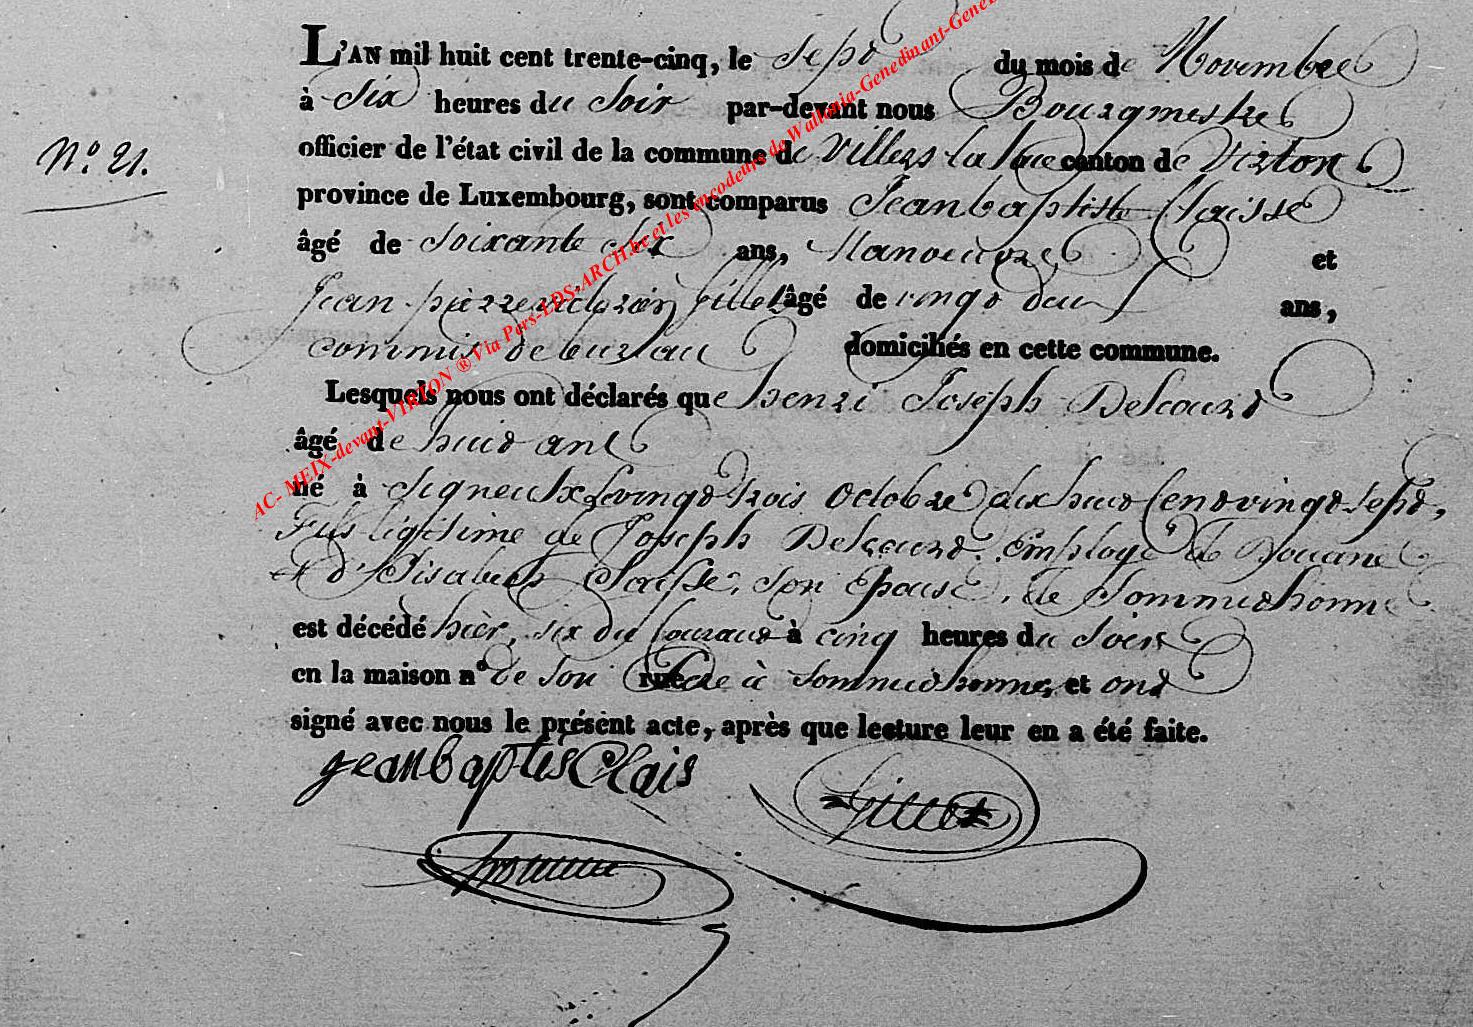 L'AN mil huit cent trente-cinq, le sept du mois de Novembre
à Six heures du Soir par-devant nous Bourgmestre
N.º 21.
officier de l'état civil de la commune de Villers la loue canton de Virton
province de Luxembourg, sont comparus Jeanbaptiste Claisse
âgé de Soixante Six ans, Manoeuvre et
Jean pierre Gillet âgé de vingt deux ans,
commis de bureau domiciliés en cette commune.
Lesquels nous ont déclarés que henri Joseph Delcourt
âgé de huit ans
né à Signeulx le vingt trois Octobre dix huit Cent vingt Sept,
Fils légitime de Joseph Delcourt Employé de Douane
et d'Elisabeth Son Epouse, de Sommethonne
est décédé hièr, six du Courant à cinq heures du Soir
en la maison nº de Son rue Père à Sommethonne, et ont
signé avec nous le présent acte, après que lecture leur en a été faite.
jeanbaptis Clais Gillet
AC- MEIX-devant-VIRTON ® Via Pers-LDS-ARCH.be et les encodeurs de Wallonia-Genedinant-Gene